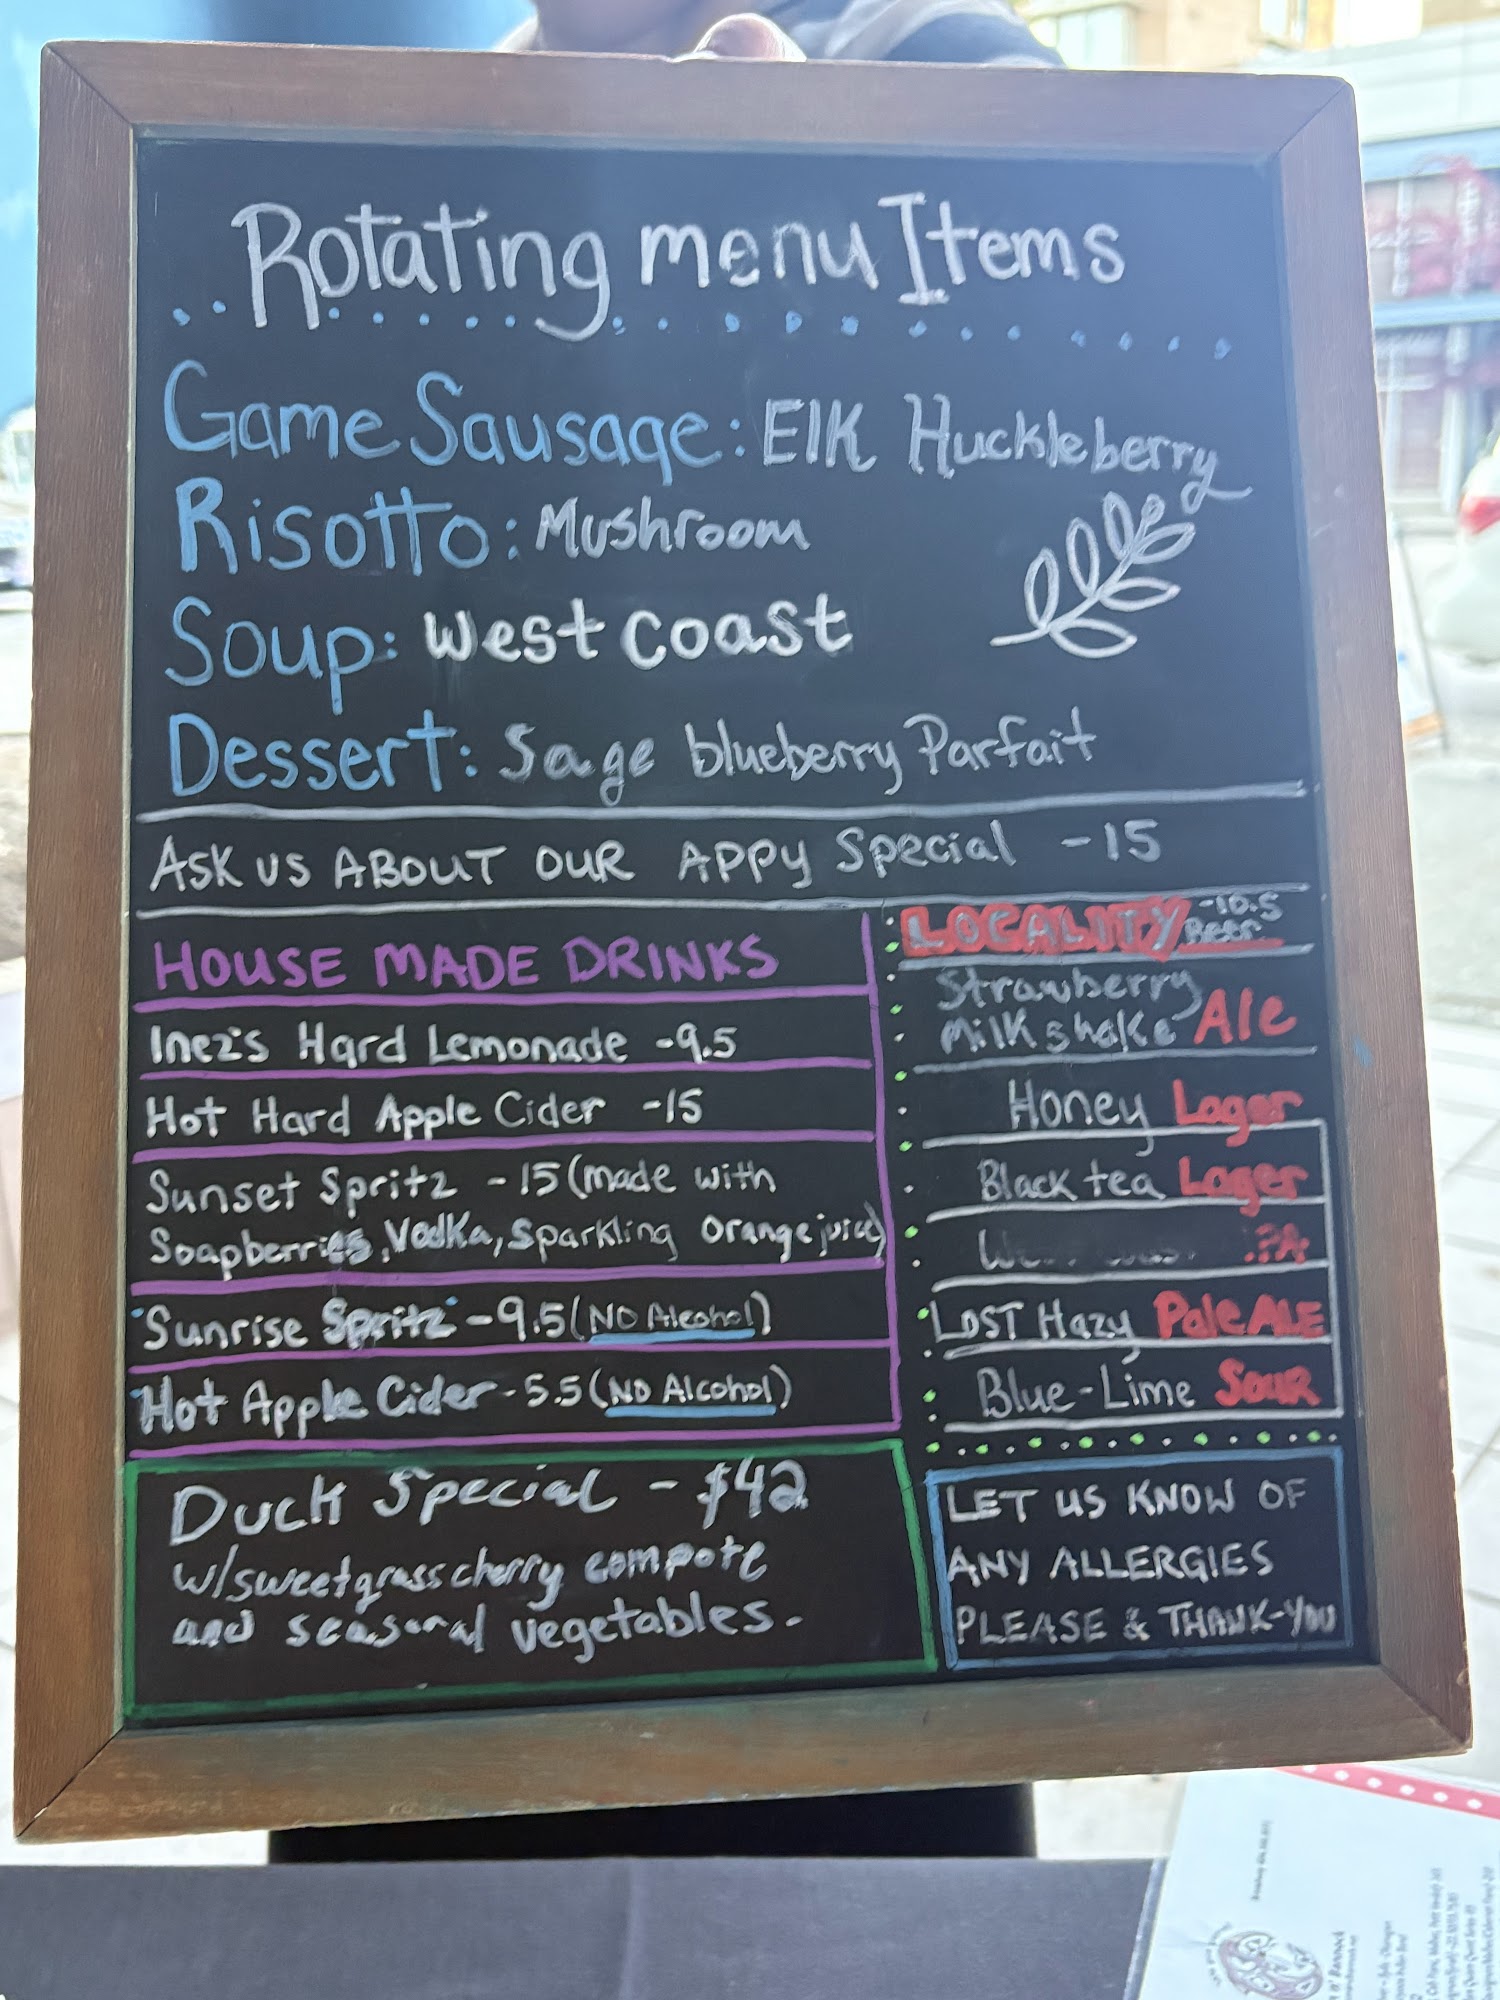 Rotating menu Items
Game Sausage: Elk Huckleberry
Risotto: Mushroom
Soup: West Coast
Dessert: Sage blueberry Parfait
ASK US ABOUT OUR APPY Special -15
HOUSE MADE DRINKS
Inez's Hard Lemonade -9.5
Hot Hard Apple Cider -15
Sunset Spritz -15 (made with
Soapberries, Vodka, Sparkling Orange juice)
"Sunrise Spritz" -9.5 (NO Alcohol)
Hot Apple Cider - 5.5 (NO Alcohol)
LOCALITY -10.5
Beer
Strawberry
Milkshake Ale
Honey Lager
Black tea Lager
LOST Hazy Pale ALE
Blue-Lime SOUR
Duck Special - $42
w/sweetgrass cherry compote
and seasonal vegetables.
LET US KNOW OF
ANY ALLERGIES
PLEASE & THANK-YOU